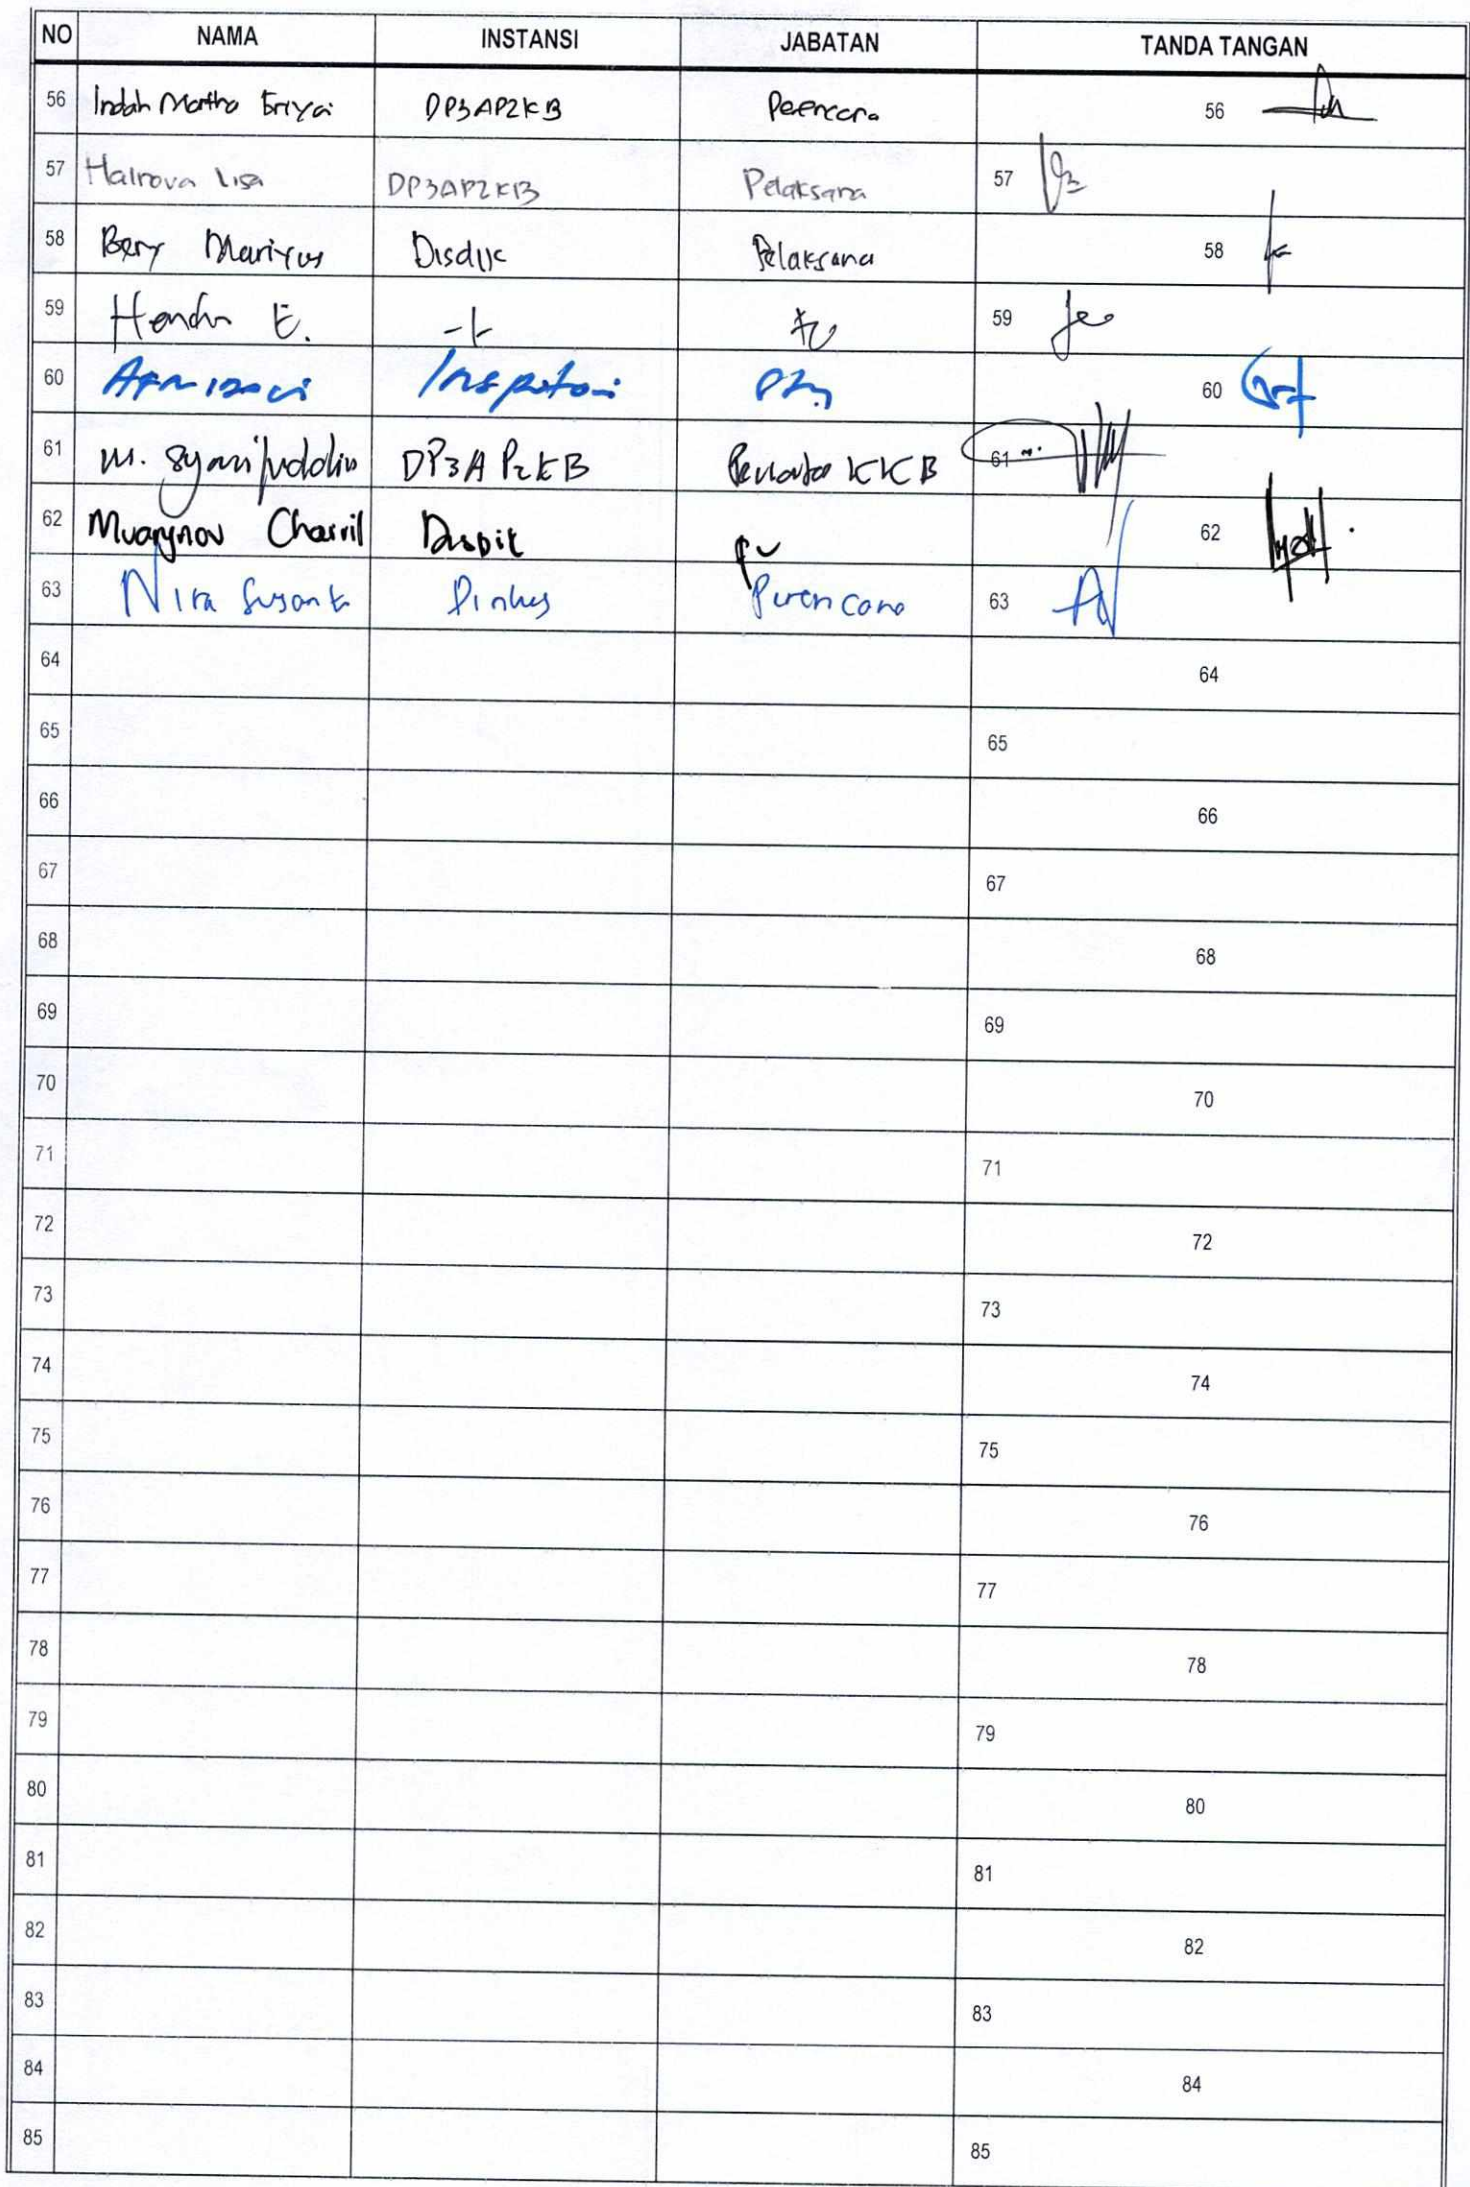 NO NAMA INSTANSI JABATAN TANDA TANGAN
56 Indah Martha Eriya DP3AP2KB Perencana 56
57 Halrova Lisa DP3AP2KB Pelaksana 57
58 Bery Mariyus Disdik Pelaksana 58
59 Hendra E. 59
60 60
61 M. Syarifuddin DP3AP2KB KKB 61
62 Charril 62
63 Nira Susanti Dinkes Perencana 63
64 64
65 65
66 66
67 67
68 68
69 69
70 70
71 71
72 72
73 73
74 74
75 75
76 76
77 77
78 78
79 79
80 80
81 81
82 82
83 83
84 84
85 85